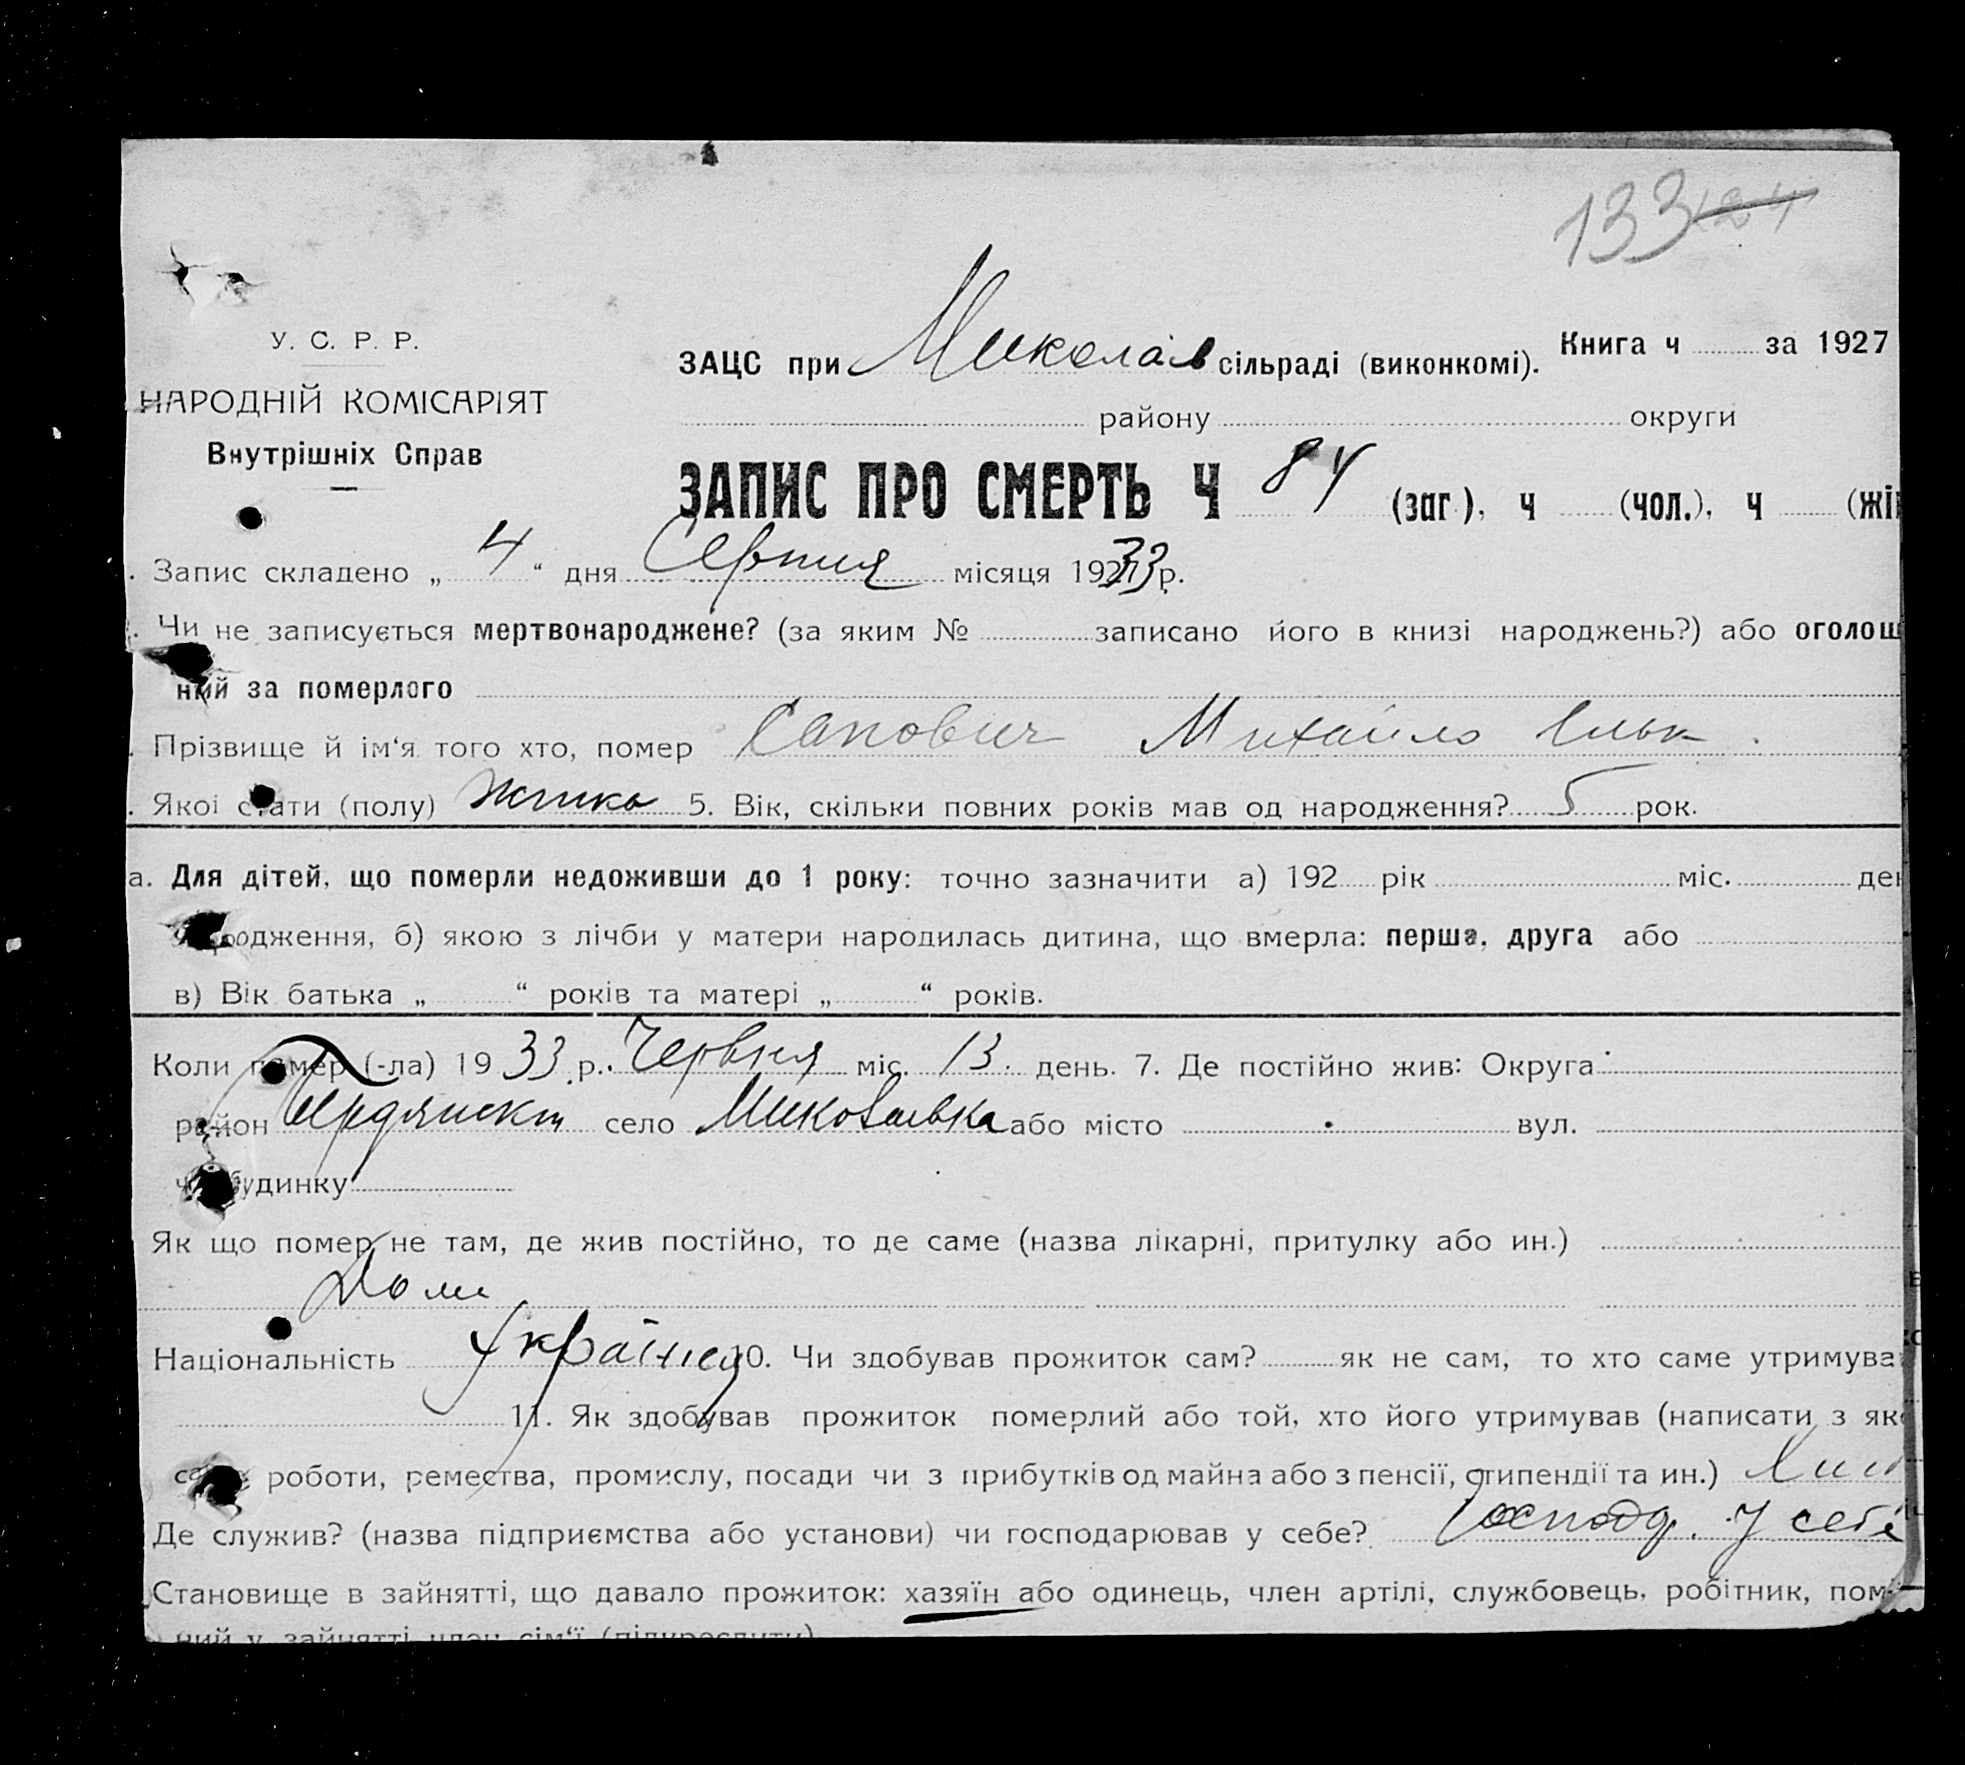 133 124
У. С. Р. Р.
НАРОДНІЙ КОМІСАРІЯТ
Внутрішніх Справ
ЗАЦС при Миколаїв сільраді (виконкомі). Книга ч за 1927
району округи
ЗАПИС ПРО СМЕРТЬ Ч 84 (заг.), ч (чол.), ч (жін
Запис складено „ 4 “ дня Серпня місяця 1933 р.
Чи не записується мертвонароджене? (за яким № записано його в книзі народжень?) або оголош
ний за померлого
Прізвище й ім‘я того хто, помер Михайло
Якої стати (полу) 5. Вік, скільки повних років мав од народження? 5 рок.
а. Для дітей, що померли недоживши до 1 року: точно зазначити а) 192 рік міс. ден
родження, б) якою з лічби у матери народилась дитина, що вмерла: перша, друга або
в) Вік батька „ “ років та матері „ “ років.
Коли помер (-ла) 19 33 р. Червня міс. 13. день. 7. Де постійно жив: Округа
район село Миколаївка або місто вул.
ч. будинку
Як що помер не там, де жив постійно, то де саме (назва лікарні, притулку або ин.)
Дома
Національність Українец 10. Чи здобував прожиток сам? як не сам, то хто саме утримува
11. Як здобував прожиток померлий або той, хто його утримував (написати з як
роботи, ремества, промислу, посади чи з прибутків од майна або з пенсії, стипендії та ин.)
Де служив? (назва підприємства або установи) чи господарював у себе? Господар. у себе
Становище в зайнятті, що давало прожиток: хазяїн або одинець, член артілі, службовець, робітник, пом
ний у зайнятті член сім‘ї (підкреслити)